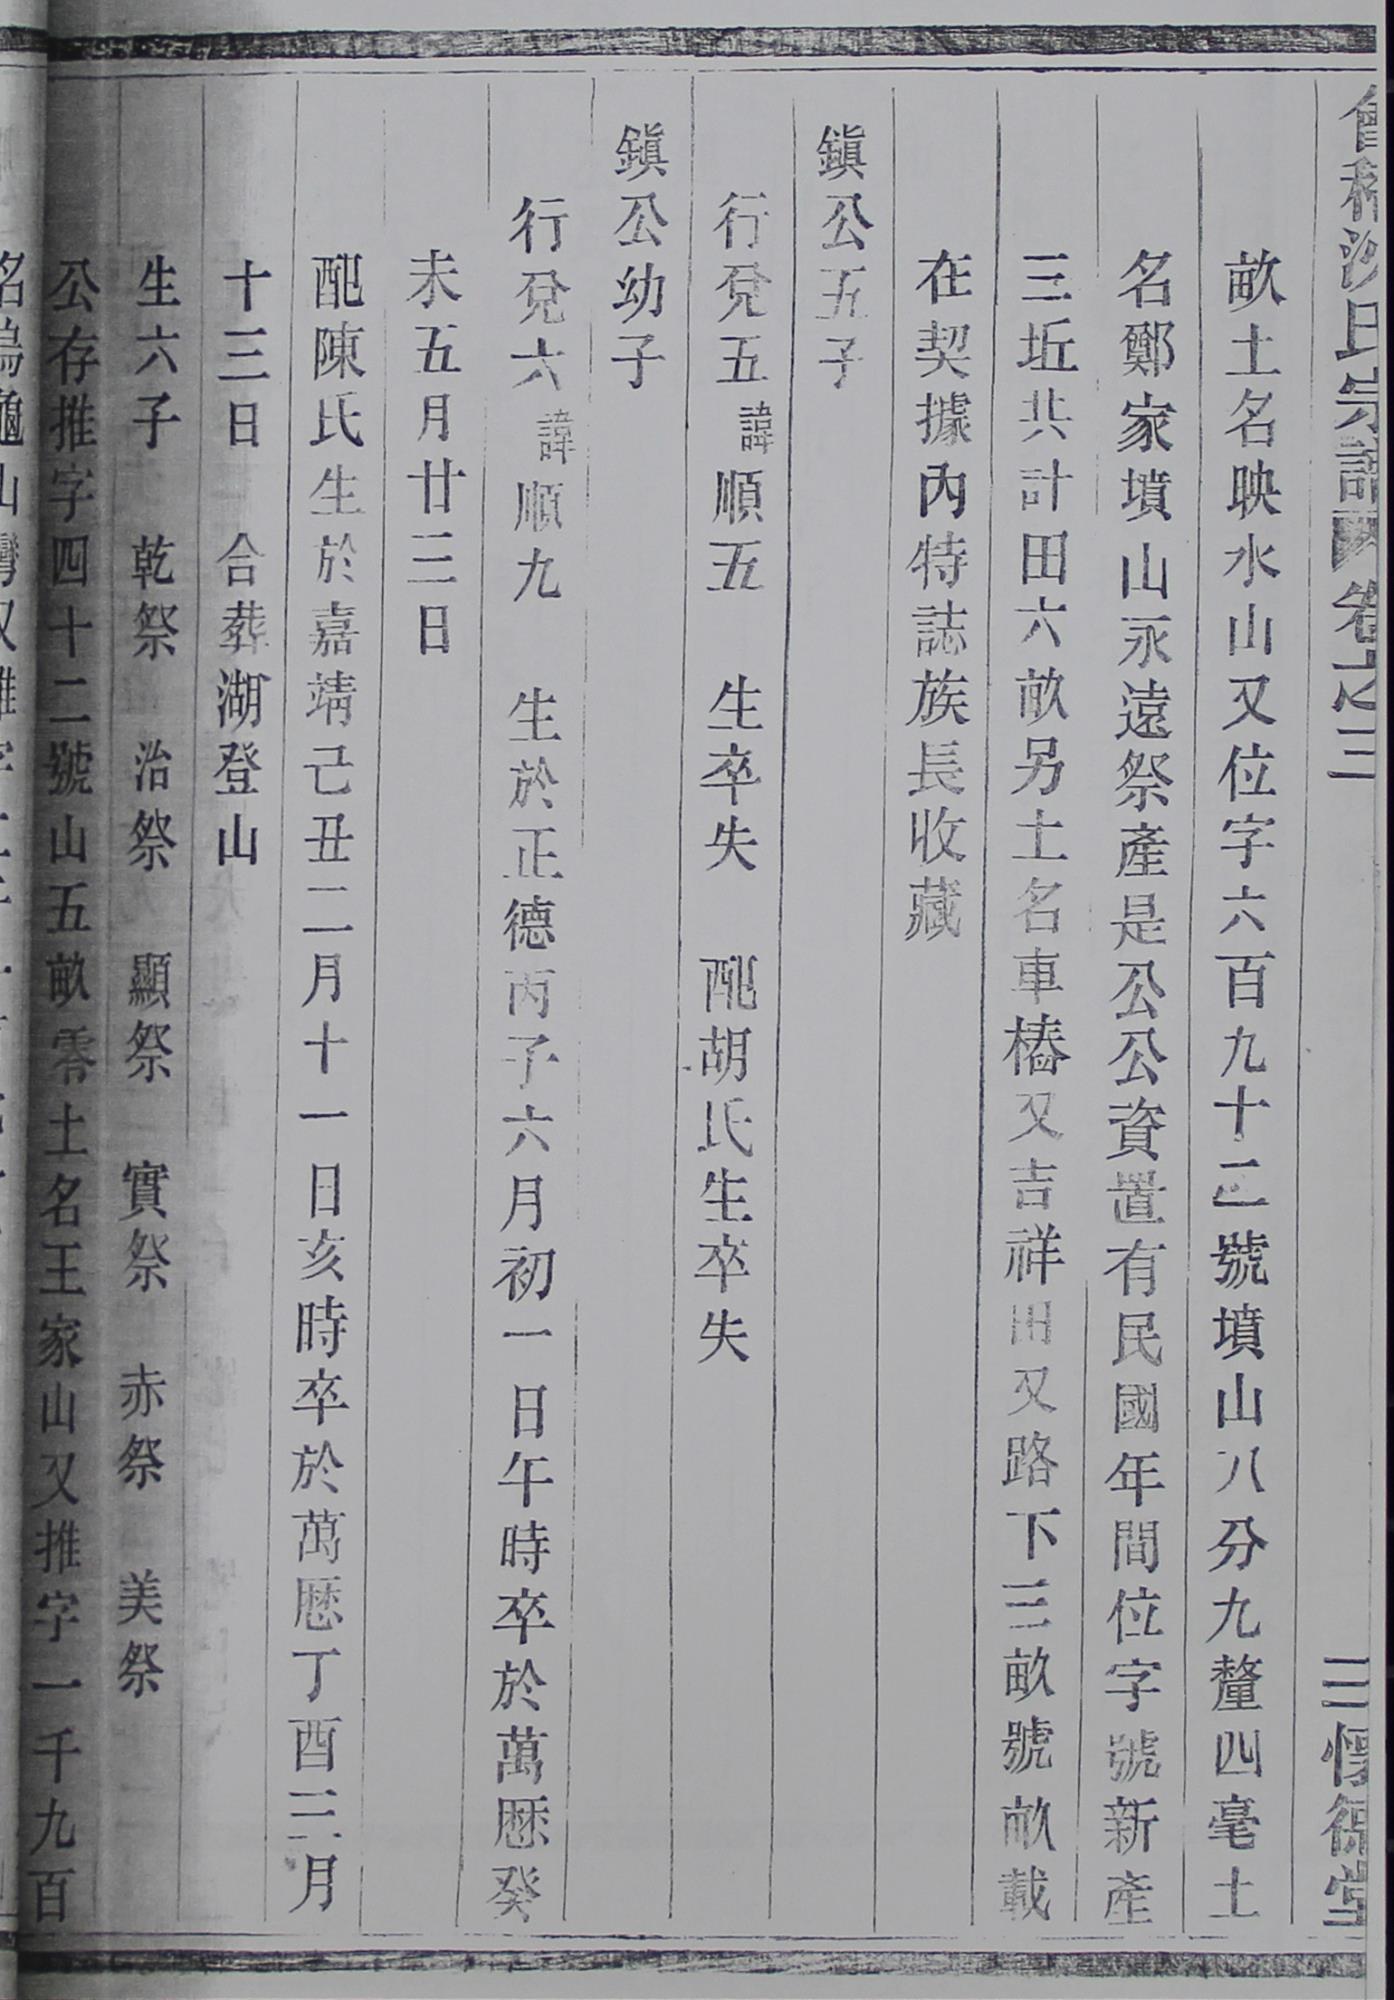 會稽沙氏宗譜 卷之三 三 懷德堂
畝土名映水山又位字六百九十三號墳山八分九釐四毫土
名鄭家墳山永遠祭產是公公資置有民國年間位字號新產
三坵共計田六畝另土名車樁又吉祥田又路下三畝號畝載
在契據內特誌族長收藏
鎮公五子
行兌五諱順五 生卒失 配胡氏生卒失
鎮公幼子
行兌六諱順九 生於正德丙子六月初一日午時卒於萬厯癸
未五月廿三日
配陳氏生於嘉靖己丑二月十一日亥時卒於萬厯丁酉三月
十三日 合葬湖登山
生六子 乾祭 治祭 顯祭 實祭 赤祭 美祭
公存推字四十二號山五畝零土名王家山又推字一千九百